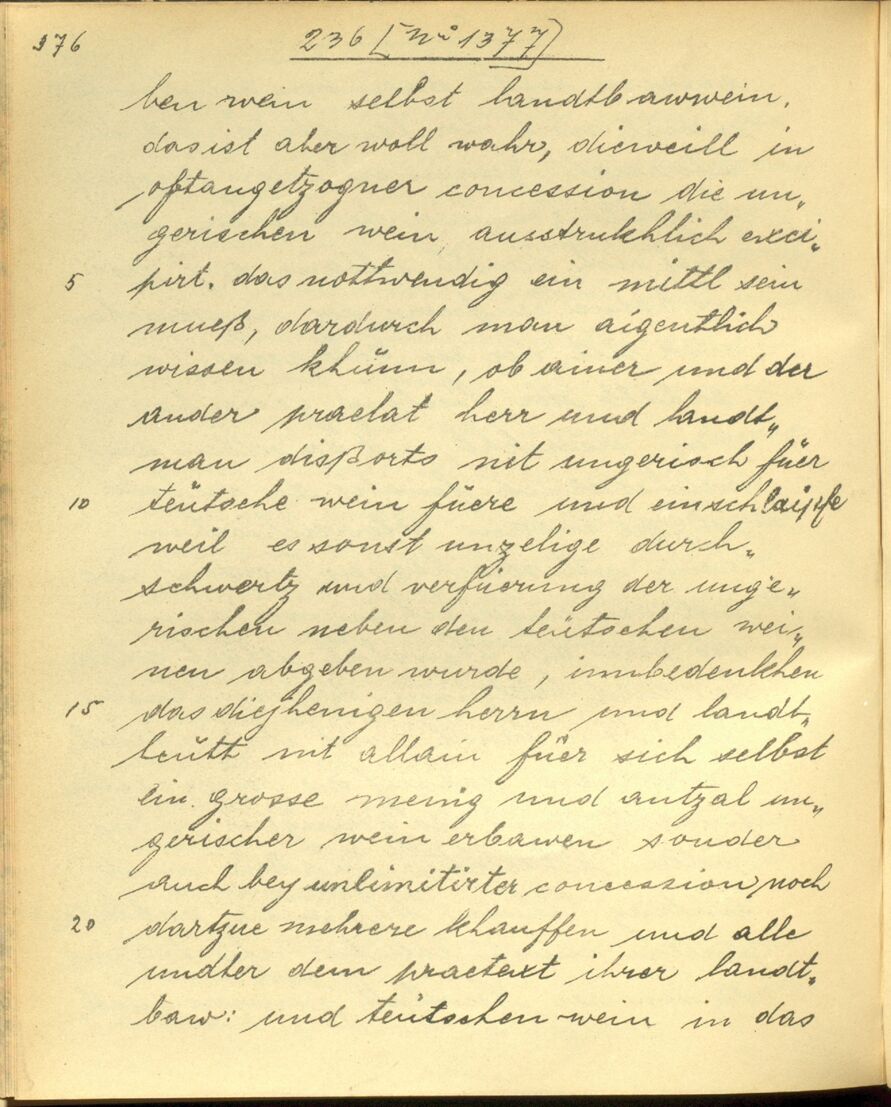 976
236 [Nro 1377]
ben wein selbst landtbawwein.
das ist aber woll wahr, dieweill in
oftangetzogner concession die un„
gerischen wein ausstrukhlich exci„
5 pirt. das nottwendig ein mittl sein
mueß, dardurch man aigentlich
wissen khünn, ob ainer und der
ander praelat herr und landt„
man dißorts nit ungerisch füer
10 teütsche wein füere und einschlaipfe
weil es sonst unzelige durch„
schwertz und verfüerung der unge„
rischen neben den teütschen wei„
nen abgeben wurde, innbedenkhen
15 das diejhenigen herrn und landt„
leütt nit allain füer sich selbst
ein grosse menig und antzal un„
gerischer wein erbawen sonder
auch bey unlimitirter concession noch
20 dartzue mehrere khauffen und alle
undter dem praetext ihrer landt„
baw: und teütschen wein in das